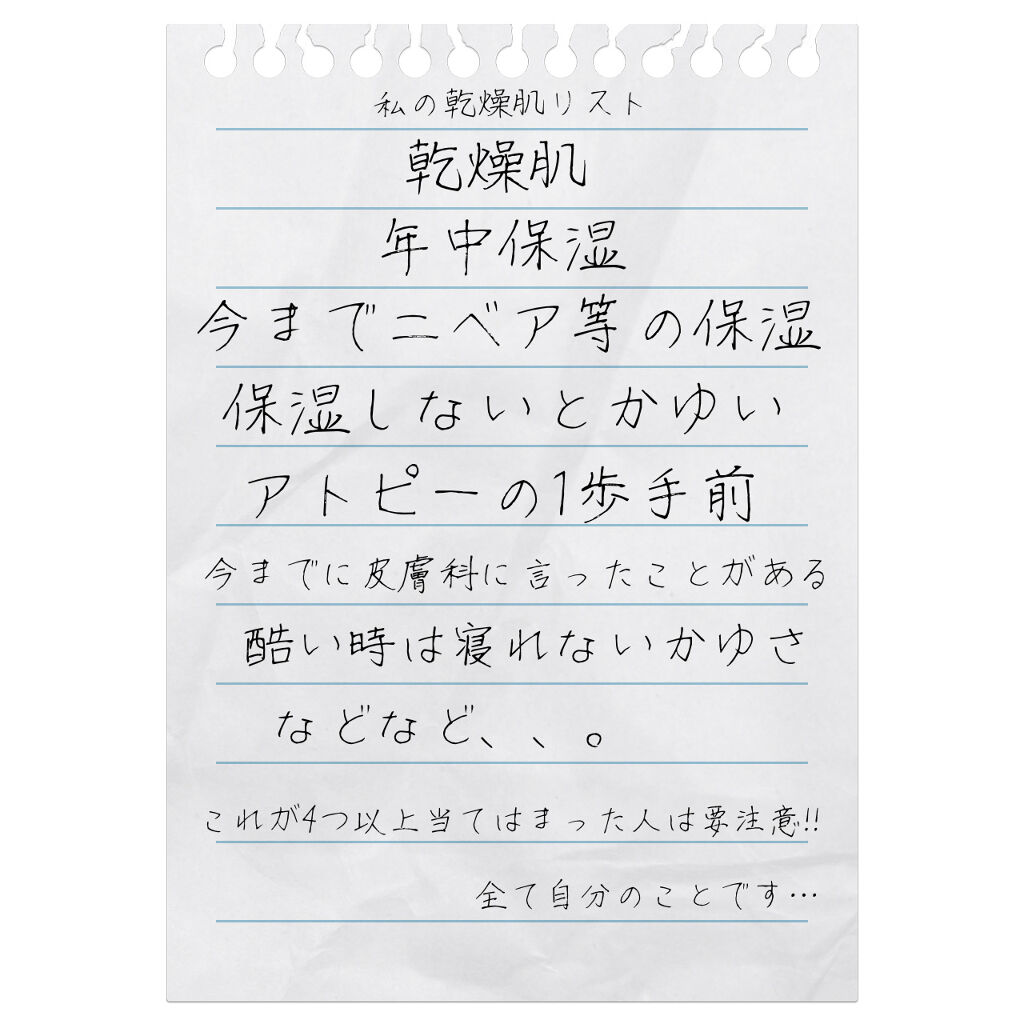 私の乾燥肌リスト
乾燥肌
年中保湿
今までニベア等の保湿
保湿しないとかゆい
アトピーの1歩手前
今までに皮膚科に言ったことがある
酷い時は寝れないかゆさ
などなど、、。
これが4つ以上当てはまった人は要注意!!
全て自分のことです…